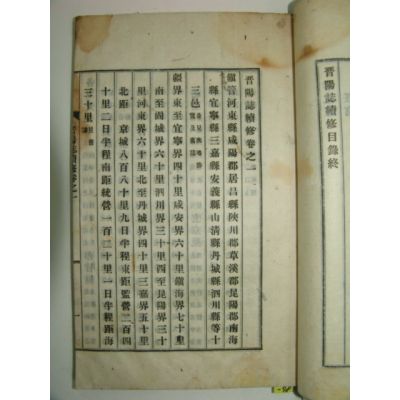 晋陽誌續修目錄終
晋陽誌續修卷之一
鎭管河東縣咸陽郡居昌縣陜川郡草溪郡昆陽郡南海
縣宜寧縣三嘉縣安義縣山淸縣丹城縣泗川縣等十
三邑
疆界東至宜寧界六十里咸安界六十里鎭海界七十里
南至固城界六十里泗川界三十里西至昆陽界三十
里河東界六十里北至丹城界四十里三嘉界五十里
北距 京城八百八十里九日半程東距監營二百四
十里二日半程南距統營一百二十里一日半程距海
三十里